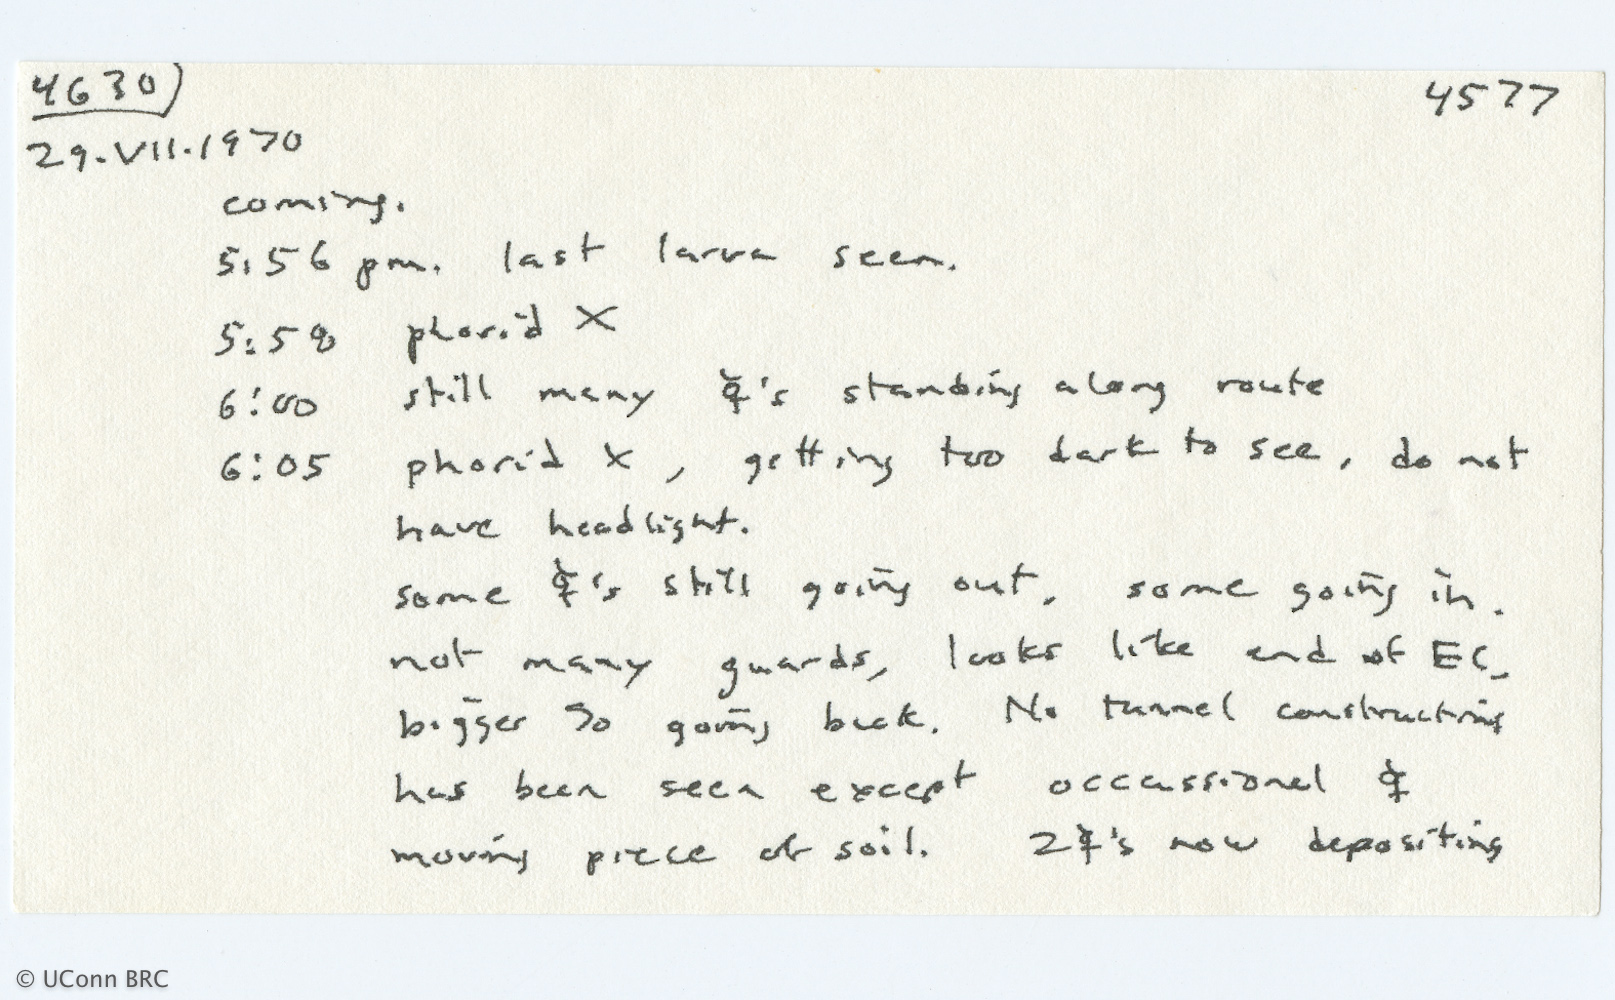 4630 4577
29.VII.1970
coming.
5:56 pm. last larva seen.
5:58 phorid X
6:00 still many ☿'s standing along route
6:05 phorid X, getting too dark to see, do not
have headlight.
some ☿'s still going out, some going in.
not many guards, looks like end of EC,
bigger So going back. No tunnel constructing
has been seen except occassional ☿
moving piece of soil. 2☿'s now depositing
© UConn BRC